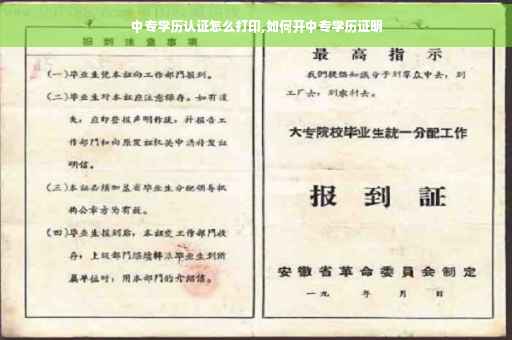 中专学历认证怎么打印,如何开中专学历证明
报到注意事项
(一)毕业生凭本证向工作部门报到。
(二)毕业生对本证应注意保存。如有遗
失,应即登报声明作废,并报告工
作部门和向原发证机关申请补发证
明信。
(三)本证必须加盖省毕业生分配领导机
构公章方为有效。
(四)毕业生报到后,本证交工作部门收
存;上级部门继续转派毕业生到所
属单位时,用本部门的介绍信。
最高指示
我们提倡知识分子到群众中去,到
工厂去,到农村去。
大专院校毕业生统一分配工作
报到证
安徽省革命委员会制定
一九 年 月 日